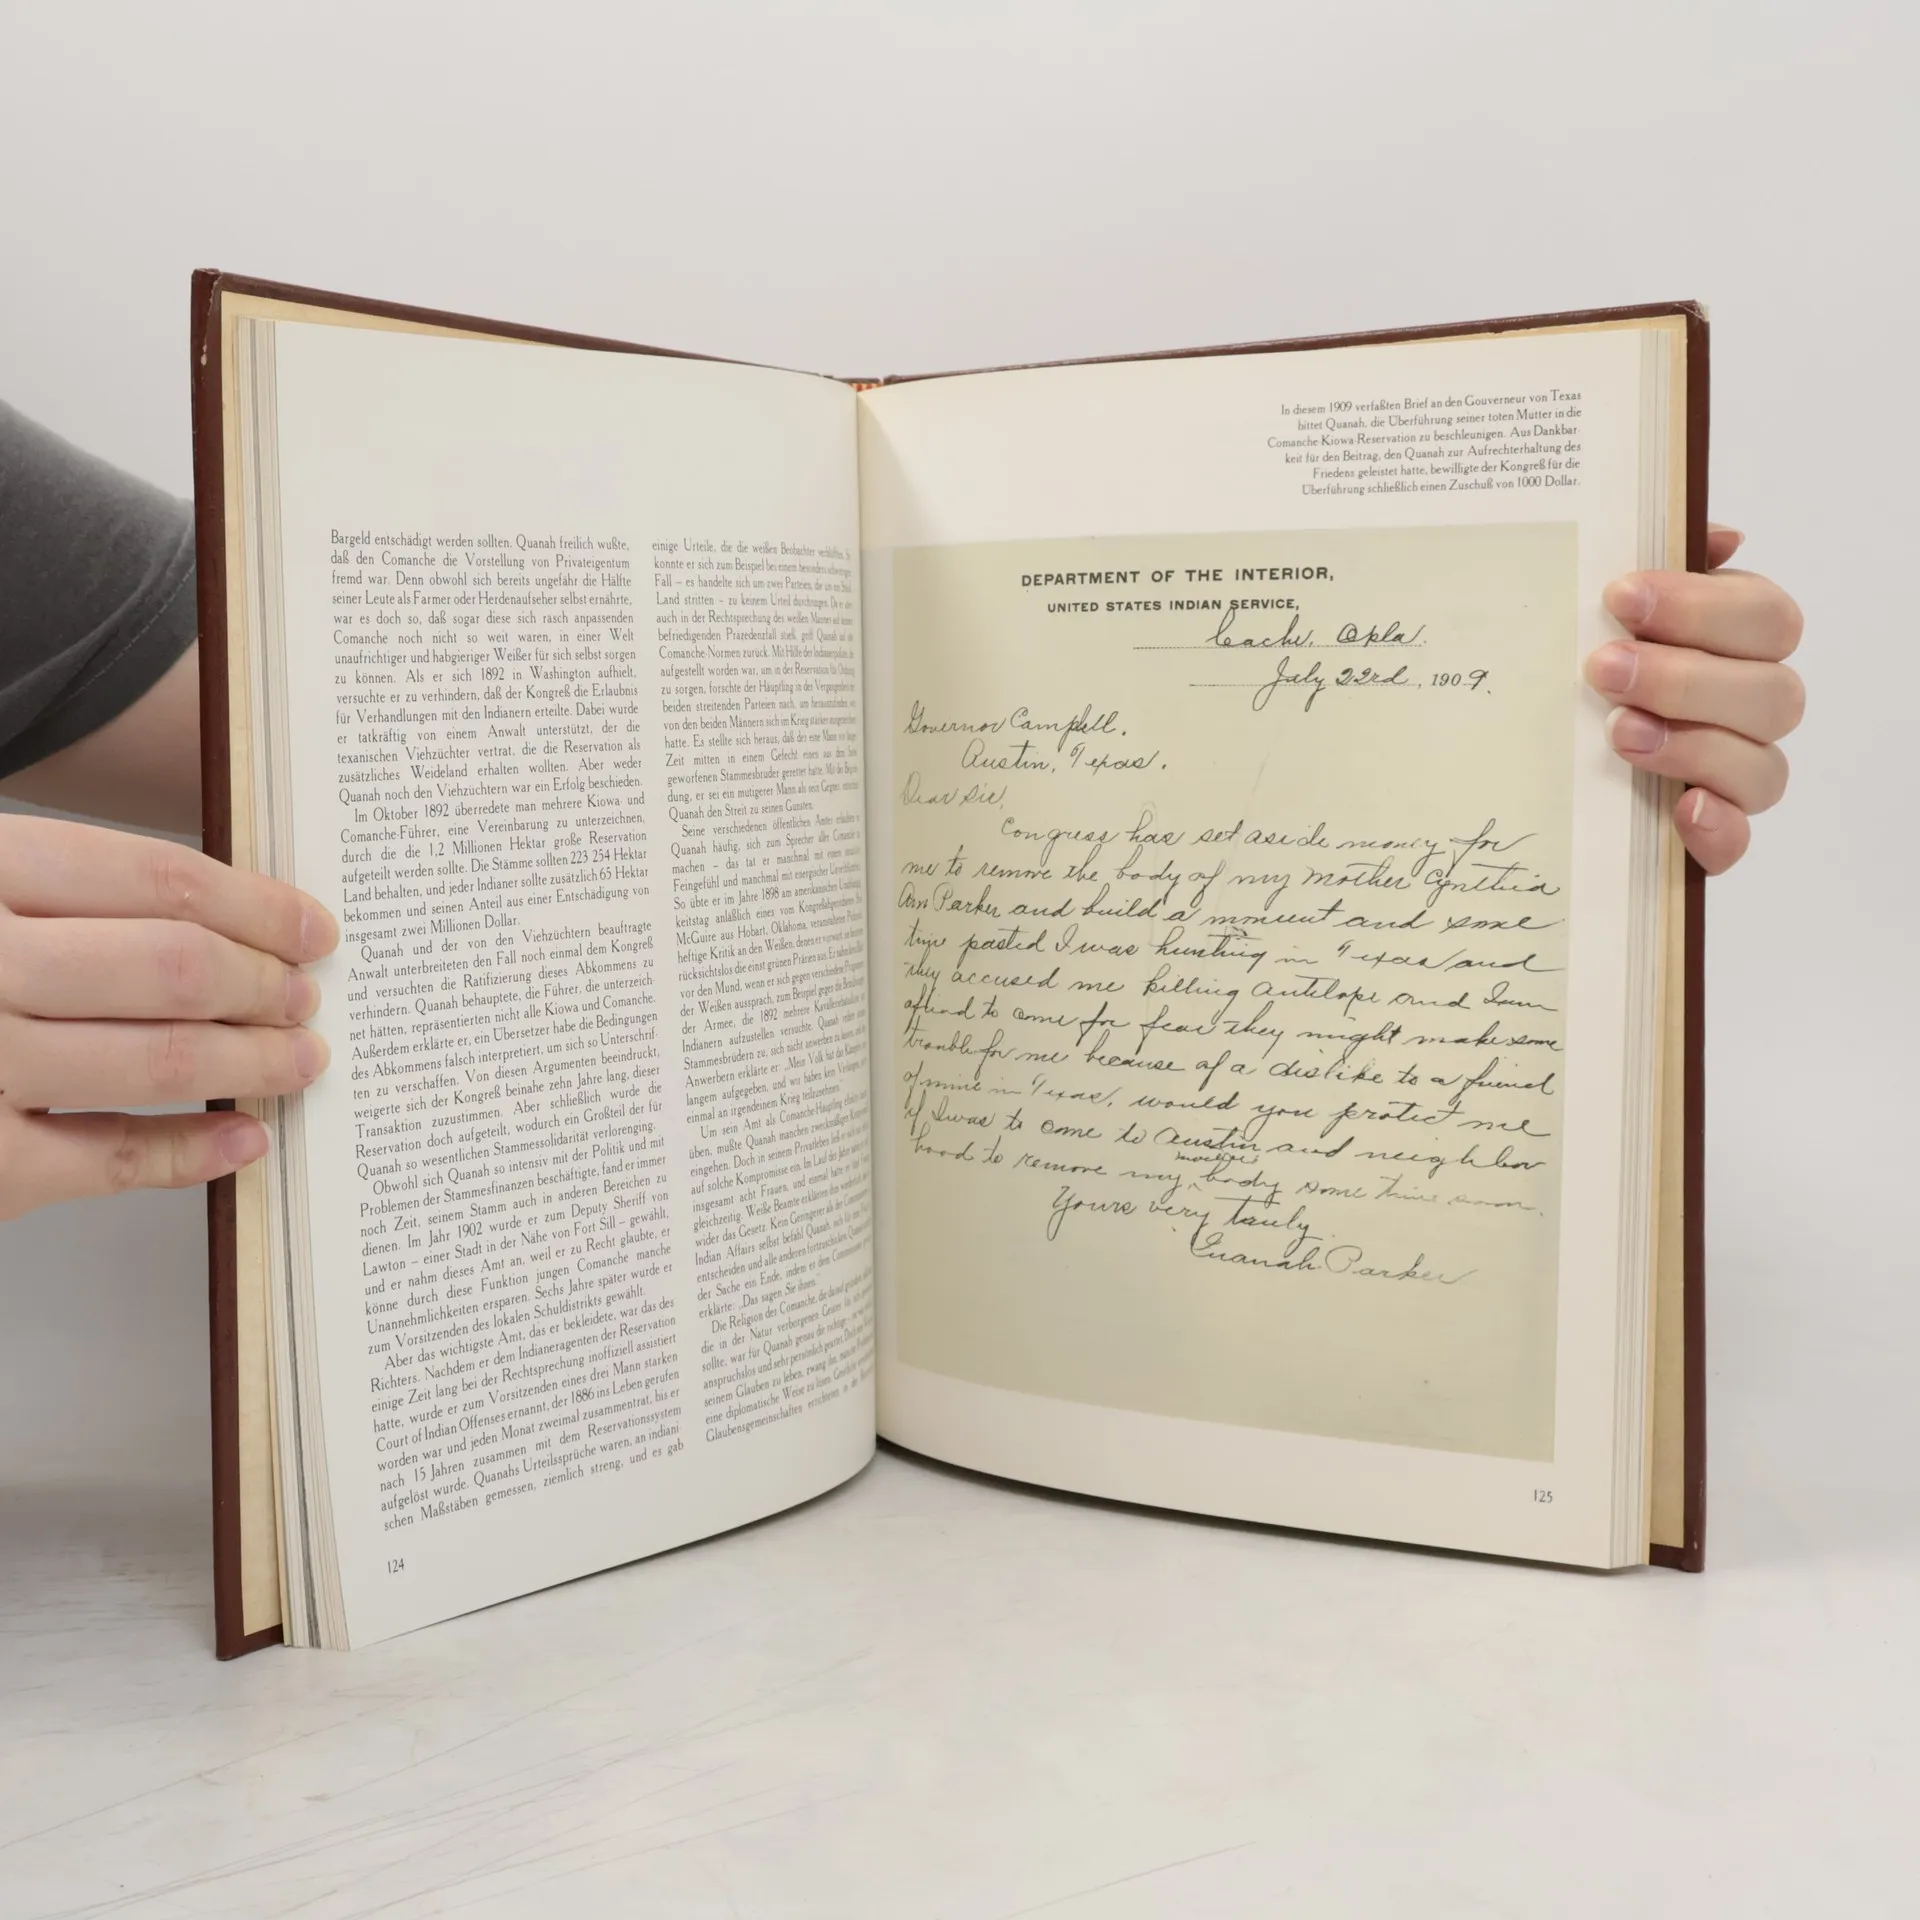 Bargeld entschädigt werden sollten. Quanah freilich wußte,
daß den Comanche die Vorstellung von Privateigentum
fremd war. Denn obwohl sich bereits ungefähr die Hälfte
seiner Leute als Farmer oder Herdenaufseher selbst ernährte,
war es doch so, daß sogar diese sich rasch anpassenden
Comanche noch nicht so weit waren, in einer Welt
unaufrichtiger und habgieriger Weißer für sich selbst sorgen
zu können. Als er sich 1892 in Washington aufhielt,
versuchte er zu verhindern, daß der Kongreß die Erlaubnis
für Verhandlungen mit den Indianern erteilte. Dabei wurde
er tatkräftig von einem Anwalt unterstützt, der die
texanischen Viehzüchter vertrat, die die Reservation als
zusätzliches Weideland erhalten wollten. Aber weder
Quanah noch den Viehzüchtern war ein Erfolg beschieden.
Im Oktober 1892 überredete man mehrere Kiowa- und
Comanche-Führer, eine Vereinbarung zu unterzeichnen,
durch die die 1,2 Millionen Hektar große Reservation
aufgeteilt werden sollte. Die Stämme sollten 223 254 Hektar
Land behalten, und jeder Indianer sollte zusätzlich 65 Hektar
bekommen und seinen Anteil aus einer Entschädigung von
insgesamt zwei Millionen Dollar.
Quanah und der von den Viehzüchtern beauftragte
Anwalt unterbreiteten den Fall noch einmal dem Kongreß
und versuchten die Ratifizierung dieses Abkommens zu
verhindern. Quanah behauptete, die Führer, die unterzeich-
net hätten, repräsentierten nicht alle Kiowa und Comanche.
Außerdem erklärte er, ein Übersetzer habe die Bedingungen
des Abkommens falsch interpretiert, um sich so Unterschrif-
ten zu verschaffen. Von diesen Argumenten beeindruckt,
weigerte sich der Kongreß beinahe zehn Jahre lang, dieser
Transaktion zuzustimmen. Aber schließlich wurde die
Reservation doch aufgeteilt, wodurch ein Großteil der für
Quanah so wesentlichen Stammessolidarität verlorenging.
Obwohl sich Quanah so intensiv mit der Politik und mit
Problemen der Stammesfinanzen beschäftigte, fand er immer
noch Zeit, seinem Stamm auch in anderen Bereichen zu
dienen. Im Jahr 1902 wurde er zum Deputy Sheriff von
Lawton – einer Stadt in der Nähe von Fort Sill – gewählt,
und er nahm dieses Amt an, weil er zu Recht glaubte, er
könne durch diese Funktion jungen Comanche manche
Unannehmlichkeiten ersparen. Sechs Jahre später wurde er
zum Vorsitzenden des lokalen Schuldistrikts gewählt.
Aber das wichtigste Amt, das er bekleidete, war das des
Richters. Nachdem er dem Indianeragenten der Reservation
einige Zeit lang bei der Rechtsprechung inoffiziell assistiert
hatte, wurde er zum Vorsitzenden eines drei Mann starken
Court of Indian Offenses ernannt, der 1886 ins Leben gerufen
worden war und jeden Monat zweimal zusammentrat, bis er
nach 15 Jahren zusammen mit dem Reservationssystem
aufgelöst wurde. Quanahs Urteilssprüche waren, an indiani-
schen Maßstäben gemessen, ziemlich streng, und es gab
124
einige Urteile, die die weißen Beobachter verblüfften. So
konnte er sich zum Beispiel bei einem besonders schwierigen
Fall – es handelte sich um zwei Parteien, die um ein Stück
Land stritten – zu keinem Urteil durchringen. Da er aber
auch in der Rechtsprechung des weißen Mannes auf keinen
befriedigenden Präzedenzfall stieß, griff Quanah auf alte
Comanche-Normen zurück. Mit Hilfe der Indianerpolizei, die
aufgestellt worden war, um in der Reservation für Ordnung
zu sorgen, forschte der Häuptling in der Vergangenheit der
beiden streitenden Parteien nach, um herauszufinden, wer
von den beiden Männern sich im Krieg stärker ausgezeichnet
hatte. Es stellte sich heraus, daß der eine Mann vor langer
Zeit mitten in einem Gefecht einen aus dem Sattel
geworfenen Stammesbruder gerettet hatte. Mit der Begrün-
dung, er sei ein mutigerer Mann als sein Gegner, entschied
Quanah den Streit zu seinen Gunsten.
Seine verschiedenen öffentlichen Ämter erlaubten es
Quanah häufig, sich zum Sprecher aller Comanche zu
machen – das tat er manchmal mit einem
Feingefühl und manchmal mit energischer
So übte er im Jahre 1898 am amerikanischen Unabhängig-
keitstag anläßlich eines vom Kongreßabgeordneten
McGuire aus Hobart, Oklahoma, veranstalteten Picknicks
heftige Kritik an den Weißen, denen er vorwarf, sie
rücksichtslos die einst grünen Prärien aus. Er nahm kein Blatt
vor den Mund, wenn er sich gegen verschiedene Programme
der Weißen aussprach, zum Beispiel gegen die Bemühungen
der Armee, die 1892 mehrere Kavallerieeinheiten aus
Indianern aufzustellen versuchte. Quanah redete seinen
Stammesbrüdern zu, sich nicht anwerben zu lassen, und den
Anwerbern erklärte er: „Mein Volk hat das Kämpfen seit
langem aufgegeben, und wir haben kein Verlangen, noch
einmal an irgendeinem Krieg teilzunehmen."
Um sein Amt als Comanche-Häuptling
üben, mußte Quanah manchen zweckmäßigen Kompromiß
eingehen. Doch in seinem Privatleben ließ er sich
auf solche Kompromisse ein. Im Lauf der Jahre
insgesamt acht Frauen, und einmal hatte er fünf
gleichzeitig. Weiße Beamte erklärten ihm
wider das Gesetz. Kein Geringerer als der Commissioner
Indian Affairs selbst befahl Quanah, sich für eine
entscheiden und alle anderen fortzuschicken. Quanah
der Sache ein Ende, indem er dem Commissioner
erklärte: „Das sagen Sie ihnen."
Die Religion der Comanche, die darauf
die in der Natur verborgenen Geister
sollte, war für Quanah genau die richtige –
anspruchslos und sehr persönlich geartet. Doch
seinem Glauben zu leben, zwang ihn,
eine diplomatische Weise zu lösen.
Glaubensgemeinschaften erschienen in der
In diesem 1909 verfaßten Brief an den Gouverneur von Texas
bittet Quanah, die Überführung seiner toten Mutter in die
Comanche-Kiowa-Reservation zu beschleunigen. Aus Dankbar-
keit für den Beitrag, den Quanah zur Aufrechterhaltung des
Friedens geleistet hatte, bewilligte der Kongreß für die
Überführung schließlich einen Zuschuß von 1000 Dollar.
DEPARTMENT OF THE INTERIOR,
UNITED STATES INDIAN SERVICE,
Cache, Okla.
July 22rd, 1909.
Governor Campbell.
Austin, Texas.
Dear Sir,
Congress has set aside money for
me to remove the body of my mother Cynthia
Ann Parker and build a monuent and some
time pasted I was hunting in Texas and
they accused me killing antelope and I am
afriad to come for fear they might make some
trouble for me because of a dislike to a friend
of mine in Texas, would you protect me
if I was to come to Austin and neighbor
hood to remove my mother's body some time soon.
Yours very truly
Quanah Parker
125